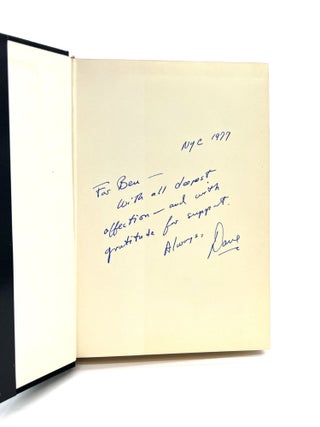 NYC 1977
For Ben —
With all deepest
affection — and with
gratitude for support.
Always,
Dave